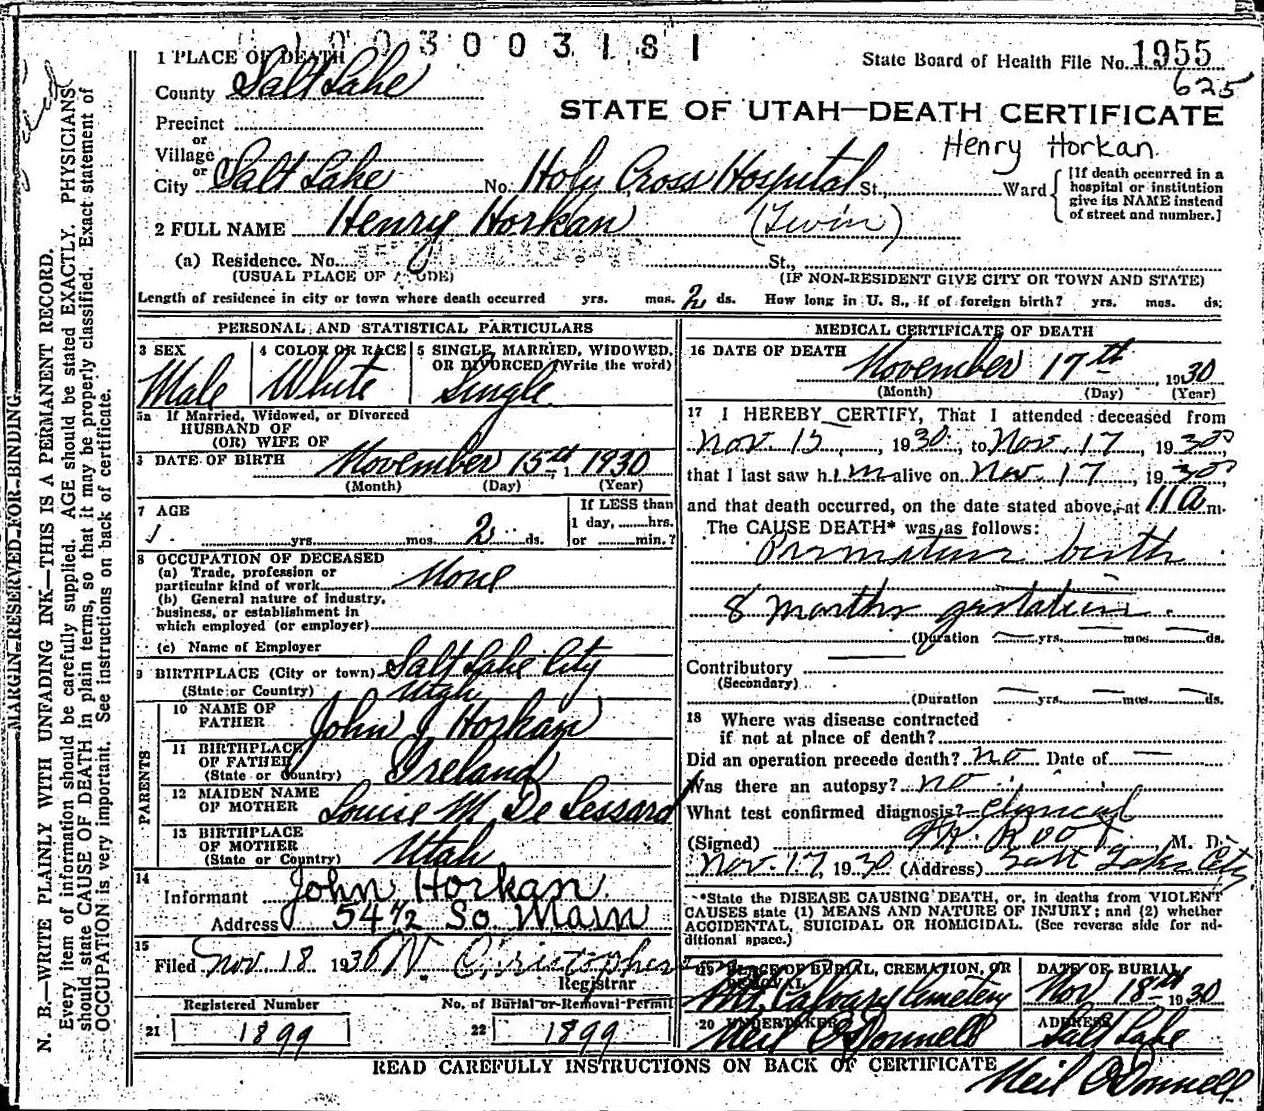 1003003181
State Board of Health File No. 1955
625
1 PLACE OF DEATH
County Salt Lake
STATE OF UTAH—DEATH CERTIFICATE
Precinct
or
Village
Henry Horkan
or
City Salt Lake No. Holy Cross Hospital St., Ward
[If death occurred in a hospital or institution give its NAME instead of street and number.]
2 FULL NAME Henry Horkan (Twin)
(a) Residence. No. St.,
(USUAL PLACE OF ABODE) (IF NON-RESIDENT GIVE CITY OR TOWN AND STATE)
Length of residence in city or town where death occurred yrs. mos. 2 ds. How long in U. S., if of foreign birth? yrs. mos. ds.
PERSONAL AND STATISTICAL PARTICULARS
3 SEX
Male
4 COLOR OR RACE
White
5 SINGLE, MARRIED, WIDOWED, OR DIVORCED (Write the word)
Single
5a If Married, Widowed, or Divorced
HUSBAND OF
(OR) WIFE OF
6 DATE OF BIRTH November 15th, 1930
(Month) (Day) (Year)
7 AGE
yrs. mos. 2 ds.
If LESS than
1 day, hrs.
or min.?
8 OCCUPATION OF DECEASED
(a) Trade, profession or
particular kind of work None
(b) General nature of industry,
business, or establishment in
which employed (or employer)
(c) Name of Employer
9 BIRTHPLACE (City or town) Salt Lake City
(State or Country) Utah
PARENTS
10 NAME OF
FATHER John J Horkan
11 BIRTHPLACE
OF FATHER
(State or Country) Ireland
12 MAIDEN NAME
OF MOTHER Louise M. De Lessard
13 BIRTHPLACE
OF MOTHER
(State or Country) Utah
14
Informant John Horkan.
Address 54 1/2 So. Main
15
Filed Nov. 18 1930 W. Christopherson
Registrar
Registered Number
21 1899
No. of Burial or Removal Permit
22 1899
MEDICAL CERTIFICATE OF DEATH
16 DATE OF DEATH
November 17th, 1930
(Month) (Day) (Year)
17 I HEREBY CERTIFY, That I attended deceased from
Nov. 15, 1930, to Nov. 17, 1930
that I last saw him alive on Nov. 17, 1930
and that death occurred, on the date stated above, at 11 a m.
The CAUSE DEATH* was as follows:
Premature birth
8 months gestation.
(Duration yrs. mos. ds.
Contributory
(Secondary)
(Duration yrs. mos. ds.
18 Where was disease contracted
if not at place of death?
Did an operation precede death? no Date of
Was there an autopsy? no
What test confirmed diagnosis? clinical
(Signed) Root, M. D.
Nov. 17, 1930 (Address) Salt Lake City
*State the DISEASE CAUSING DEATH, or, in deaths from VIOLENT
CAUSES state (1) MEANS AND NATURE OF INJURY; and (2) whether
ACCIDENTAL, SUICIDAL OR HOMICIDAL. (See reverse side for ad-
ditional space.)
19 PLACE OF BURIAL, CREMATION, OR
REMOVAL
Mt. Calvary Cemetery
DATE OF BURIAL
Nov 18th 1930
20 UNDERTAKER
Neil O'Donnell
ADDRESS
Salt Lake
READ CAREFULLY INSTRUCTIONS ON BACK OF CERTIFICATE
Neil O'Donnell
MARGIN RESERVED FOR BINDING
N. B.—WRITE PLAINLY WITH UNFADING INK—THIS IS A PERMANENT RECORD.
Every item of information should be carefully supplied. AGE should be stated EXACTLY. PHYSICIANS
should state CAUSE OF DEATH in plain terms, so that it may be properly classified. Exact statement of
OCCUPATION is very important. See instructions on back of certificate.